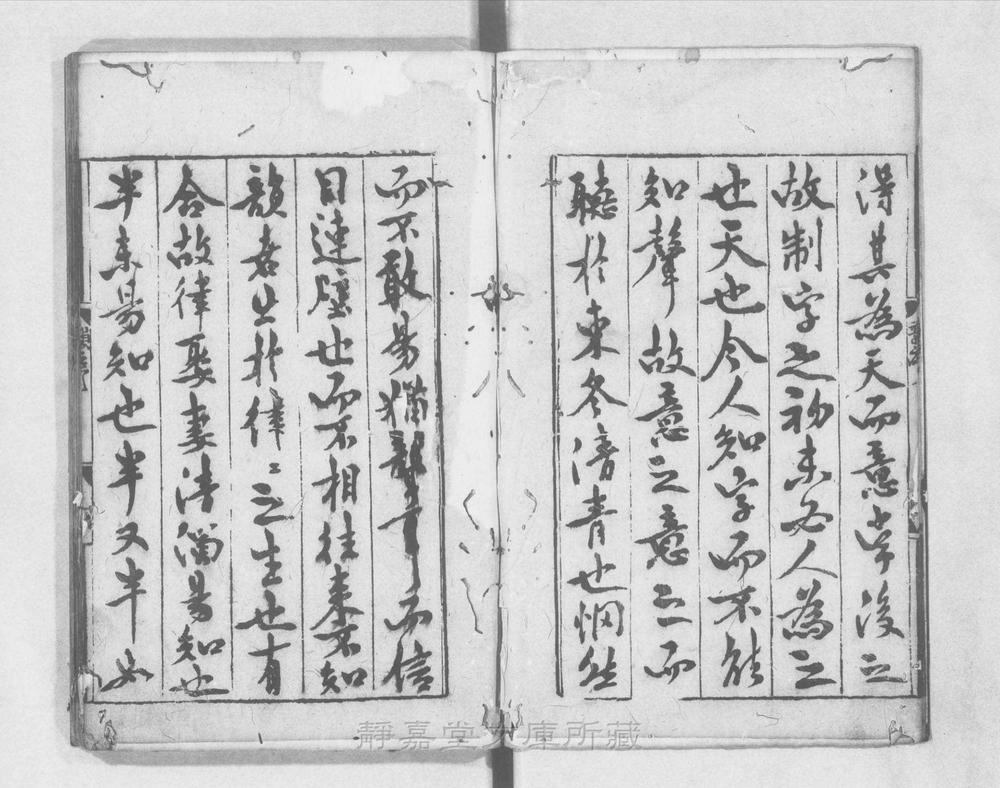 得其為天而意學後之
故制字之初未必人為之
也天也今人知字而不能
知聲故意之意之而
聽於東冬清青也惘然
而不敢易猶而信
目連壁也而不相往来不知
韻者止於律〻之生也有
合故律娶妻清濁易知也
半未易知也半又半如
靜嘉堂文庫所藏